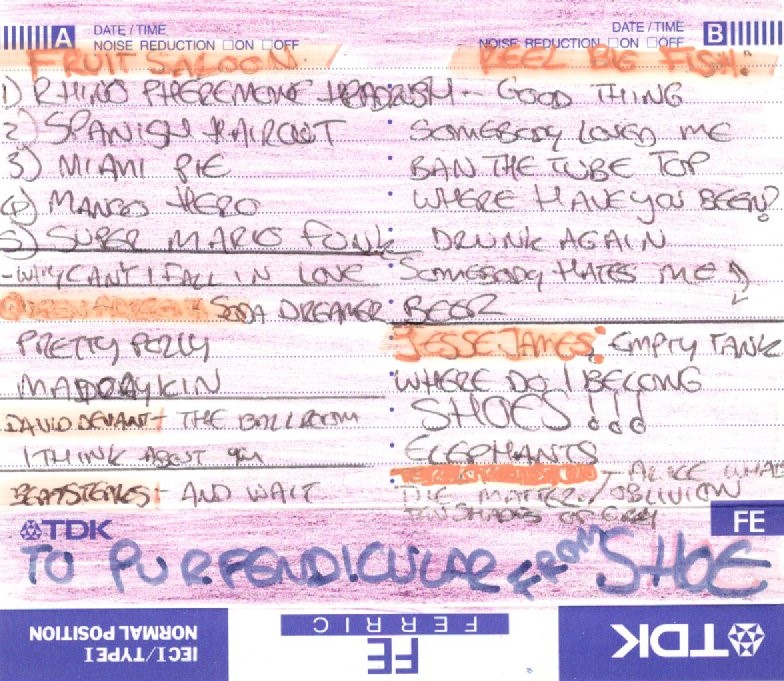 A DATE / TIME
NOISE REDUCTION □ON □OFF
FRUIT SALOON
1) RHINO PHEREMONE HEADRUSH
2) SPANISH HAIRCUT
3) MIAMI PIE
4) MANGO HERO
5) SUPER MARIO FUNK
- WHY CAN'T I FALL IN LOVE
SODA DREAMER
PRETTY POLLY
DAVID DEVANT - THE BALLROOM
I THINK ABOUT YOU
- AND WAIT
DATE / TIME B
NOISE REDUCTION □ON □OFF
REEL BIG FISH:
- GOOD THING
SOMEBODY LOVED ME
BAN THE TUBE TOP
WHERE HAVE YOU BEEN?
DRUNK AGAIN
SOMEBODY HATES ME
BEER
JESSE JAMES: EMPTY TANK
WHERE DO I BELONG
SHOES!!!
ELEPHANTS
- ALICE WHAT
THE MATTER / OBLIVION
TEN SHADES OF GREY
FE
TDK
TO PURPENDICULAR FROM SHOE
IECI/TYPE I
NORMAL POSITION
FE
FERRIC
TDK